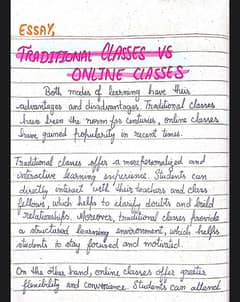 ESSAY
TRADITIONAL CLASSES VS
ONLINE CLASSES
Both modes of learning have their
advantages and disadvantages. Traditional classes
have been the norm for centuries, online classes
have gained popularity in recent times.
Traditional classes offer a more personalized and
interactive learning experience. Students can
directly interact with their teachers and class
fellows, which helps to clarify doubts and build
relationships. Moreover, traditional classes provide
a structured learning environment, which helps
students to stay focused and motivated.
On the other hand, online classes offer greater
flexibility and convenience. Students can attend